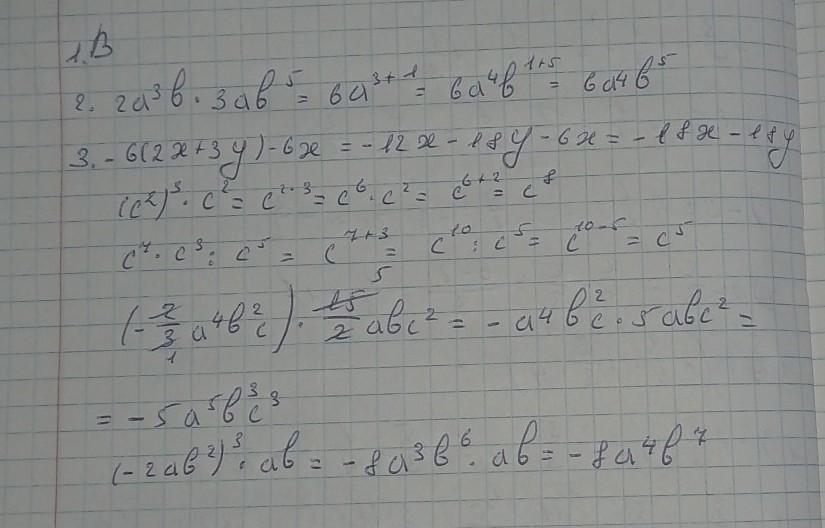 1. В
2. 2a³b · 3ab⁵ = 6a³⁺¹ = 6a⁴b¹⁺⁵ = 6a⁴b⁵
3. -6(2x+3y)-6x = -12x-18y-6x = -18x-18y
(c²)³ · c² = c²·³ = c⁶ · c² = c⁶⁺² = c⁸
c⁷ · c³ : c⁵ = c⁷⁺³ = c¹⁰ : c⁵ = c¹⁰⁻⁵ = c⁵
(-2/3 a⁴b²c) · 15/2 abc² = -a⁴b²c · 5abc² =
= -5a⁵b³c³
(-2ab²)³ · ab = -8a³b⁶ · ab = -8a⁴b⁷